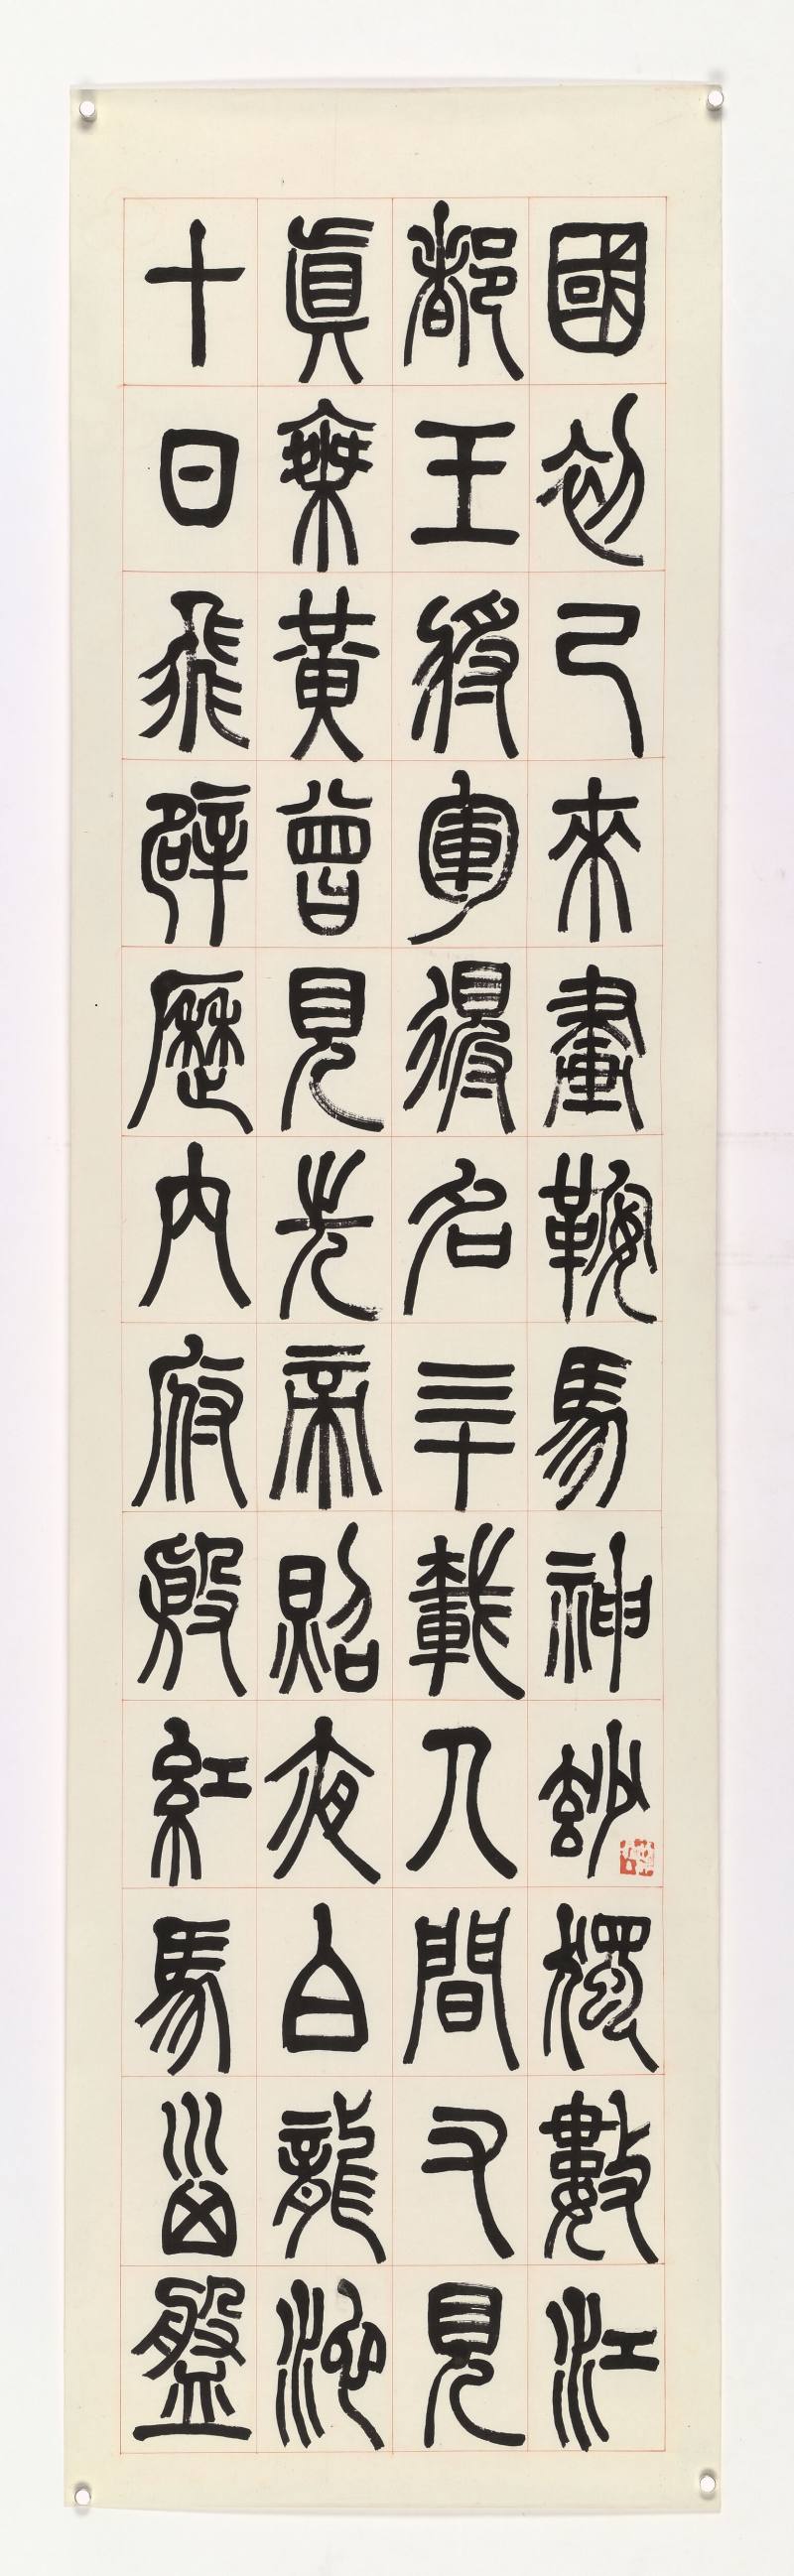 國初已來畫鞍馬神玅獨數江
都王將軍得名三十載人間又見
眞乘黃曾見先帝照夜白龍池
十日飛辟歷內府殷紅馬𡿺盤